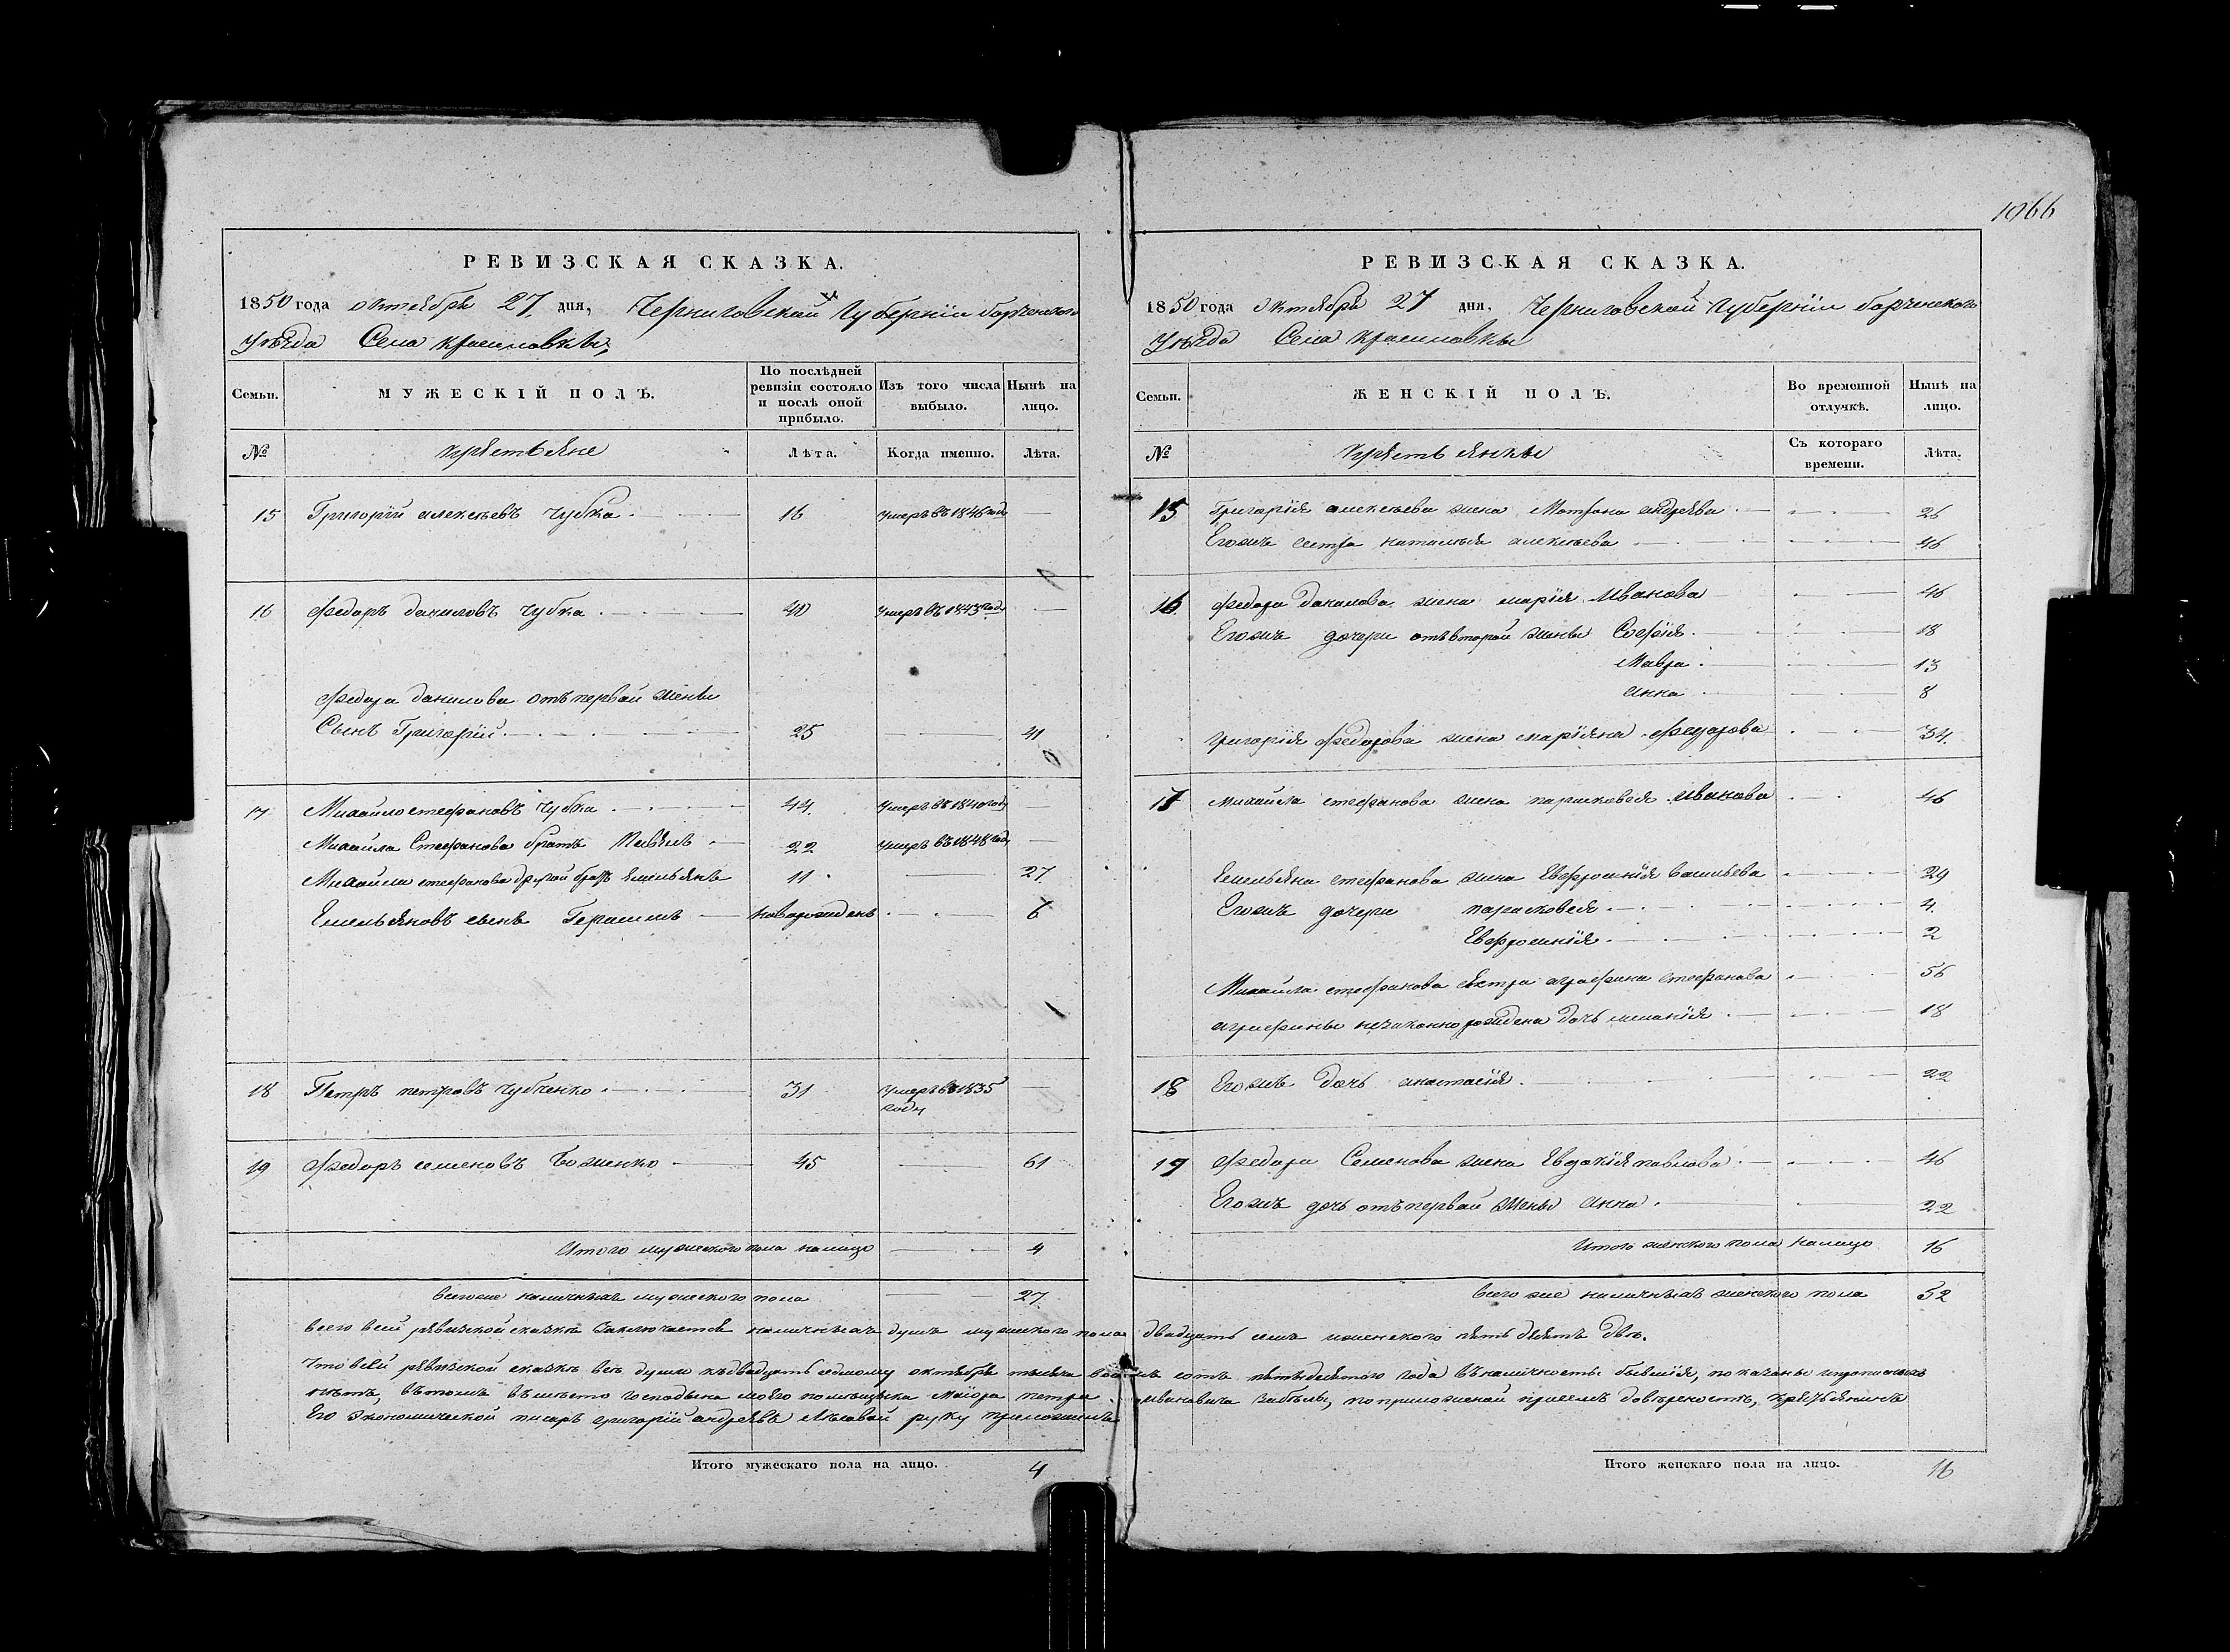 1066
РЕВИЗСКАЯ СКАЗКА.
1850 года октября 27, дня, Черниговской Губернiи борзенского
уѣзда Села красиловки,
Семьи.
МУЖЕСКІЙ ПОЛЪ.
По послѣдней ревизіи состояло и послѣ оной прибыло.
Изъ того числа выбыло.
Нынѣ на лицо.
№
крестьяне
Лѣта.
Когда именно.
Лѣта.
15 Григорій алексѣевъ чубка 16 умеръ въ 1846 году
16 Федоръ даниловъ чубка 40 умеръ въ 1843 году
Федора данилова отъ первой жены
Сынъ Григорій 25 41
17 Михайло стефановъ чубка 44 умеръ въ 1840 году
Михайла Стефанова братъ 22 умеръ въ 1848 году
Михайла стефанова другой братъ Емельянъ 11 27
Емельяновъ сынъ Герасимъ новорожденъ 6
18 Петръ петровъ чубченко 31 умеръ въ 1835
году
19 Федоръ семеновъ Боженко 45 61
Итого мужеского пола налицо 4
всего же наличныхъ мужеского пола 27
РЕВИЗСКАЯ СКАЗКА.
1850 года октября 27 дня, Черниговской Губернiи борзенского
уѣзда Села красиловки
Семьи.
ЖЕНСКІЙ ПОЛЪ.
Во временной отлучкѣ.
Нынѣ на лицо.
№
крестьянки
Съ котораго времени.
Лѣта.
15 Григорія алексѣева жена Матрона андрѣева 26
Егожъ сестра наталья алексѣева 46
16 Федора данилова жена марія Иванова 46
Егожъ дочери отъ второй жены Софія 18
Мавра 13
анна 8
григорія Федорова жена маріяна Федорова 34
17 михайла стефанова жена парасковея Иванова 46
Емельяна стефанова жена Евфросинія васильева 29
Егожъ дочери парасковея 4
Евфросинія 2
Михайла стефанова сестра аграфина стефанова 56
аграфины незаконно рождена дочь меланія 18
18 Егожъ дочь анастасія 22
19 Федора Семенова жена Евдокія павлова 46
Егожъ дочь отъ первой жены анна 22
Итого женского пола налицо 16
всего же наличныхъ женского пола 52
всего всей ревизской сказкѣ заключается наличныхъ душъ мужеского пола двадцать семь иженского пять десятъ двѣ.
Что всей ревизской сказкѣ всѣ души къ двадцать седмому октября тысяча восемь сотъ пятьдесятого года въ наличности бывшія, показаны ипрописныхъ
нѣтъ, въ томъ вмѣсто господина моего помѣщика маіора петра ивановича забѣлы, поприложеной присемъ довѣреностѣ, крестьянинъ
Его Экономической писарь григорій андрѣевъ руку приложилъ
Итого мужескаго пола на лицо. 4
Итого женскаго пола на лицо. 16